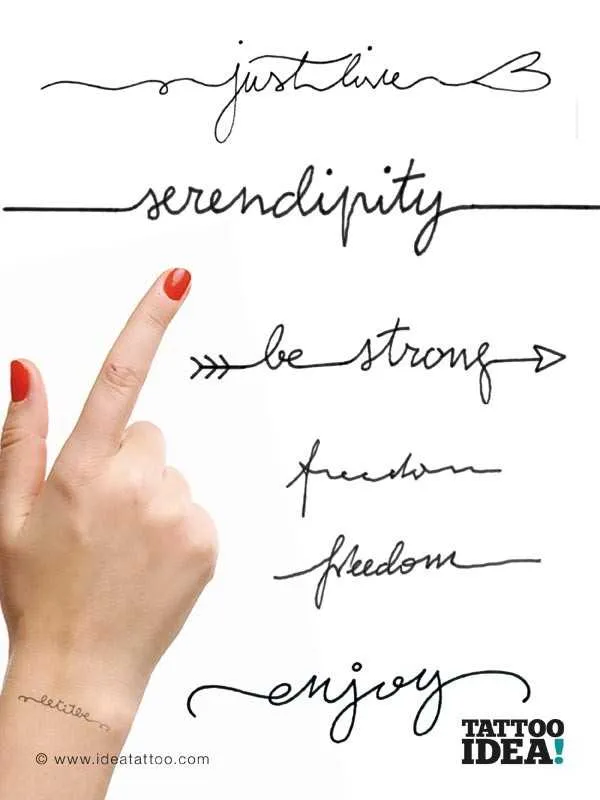 just live
serendipity
be strong
freedom
freedom
enjoy
let it be
TATTOO
IDEA!
© www.ideatattoo.com